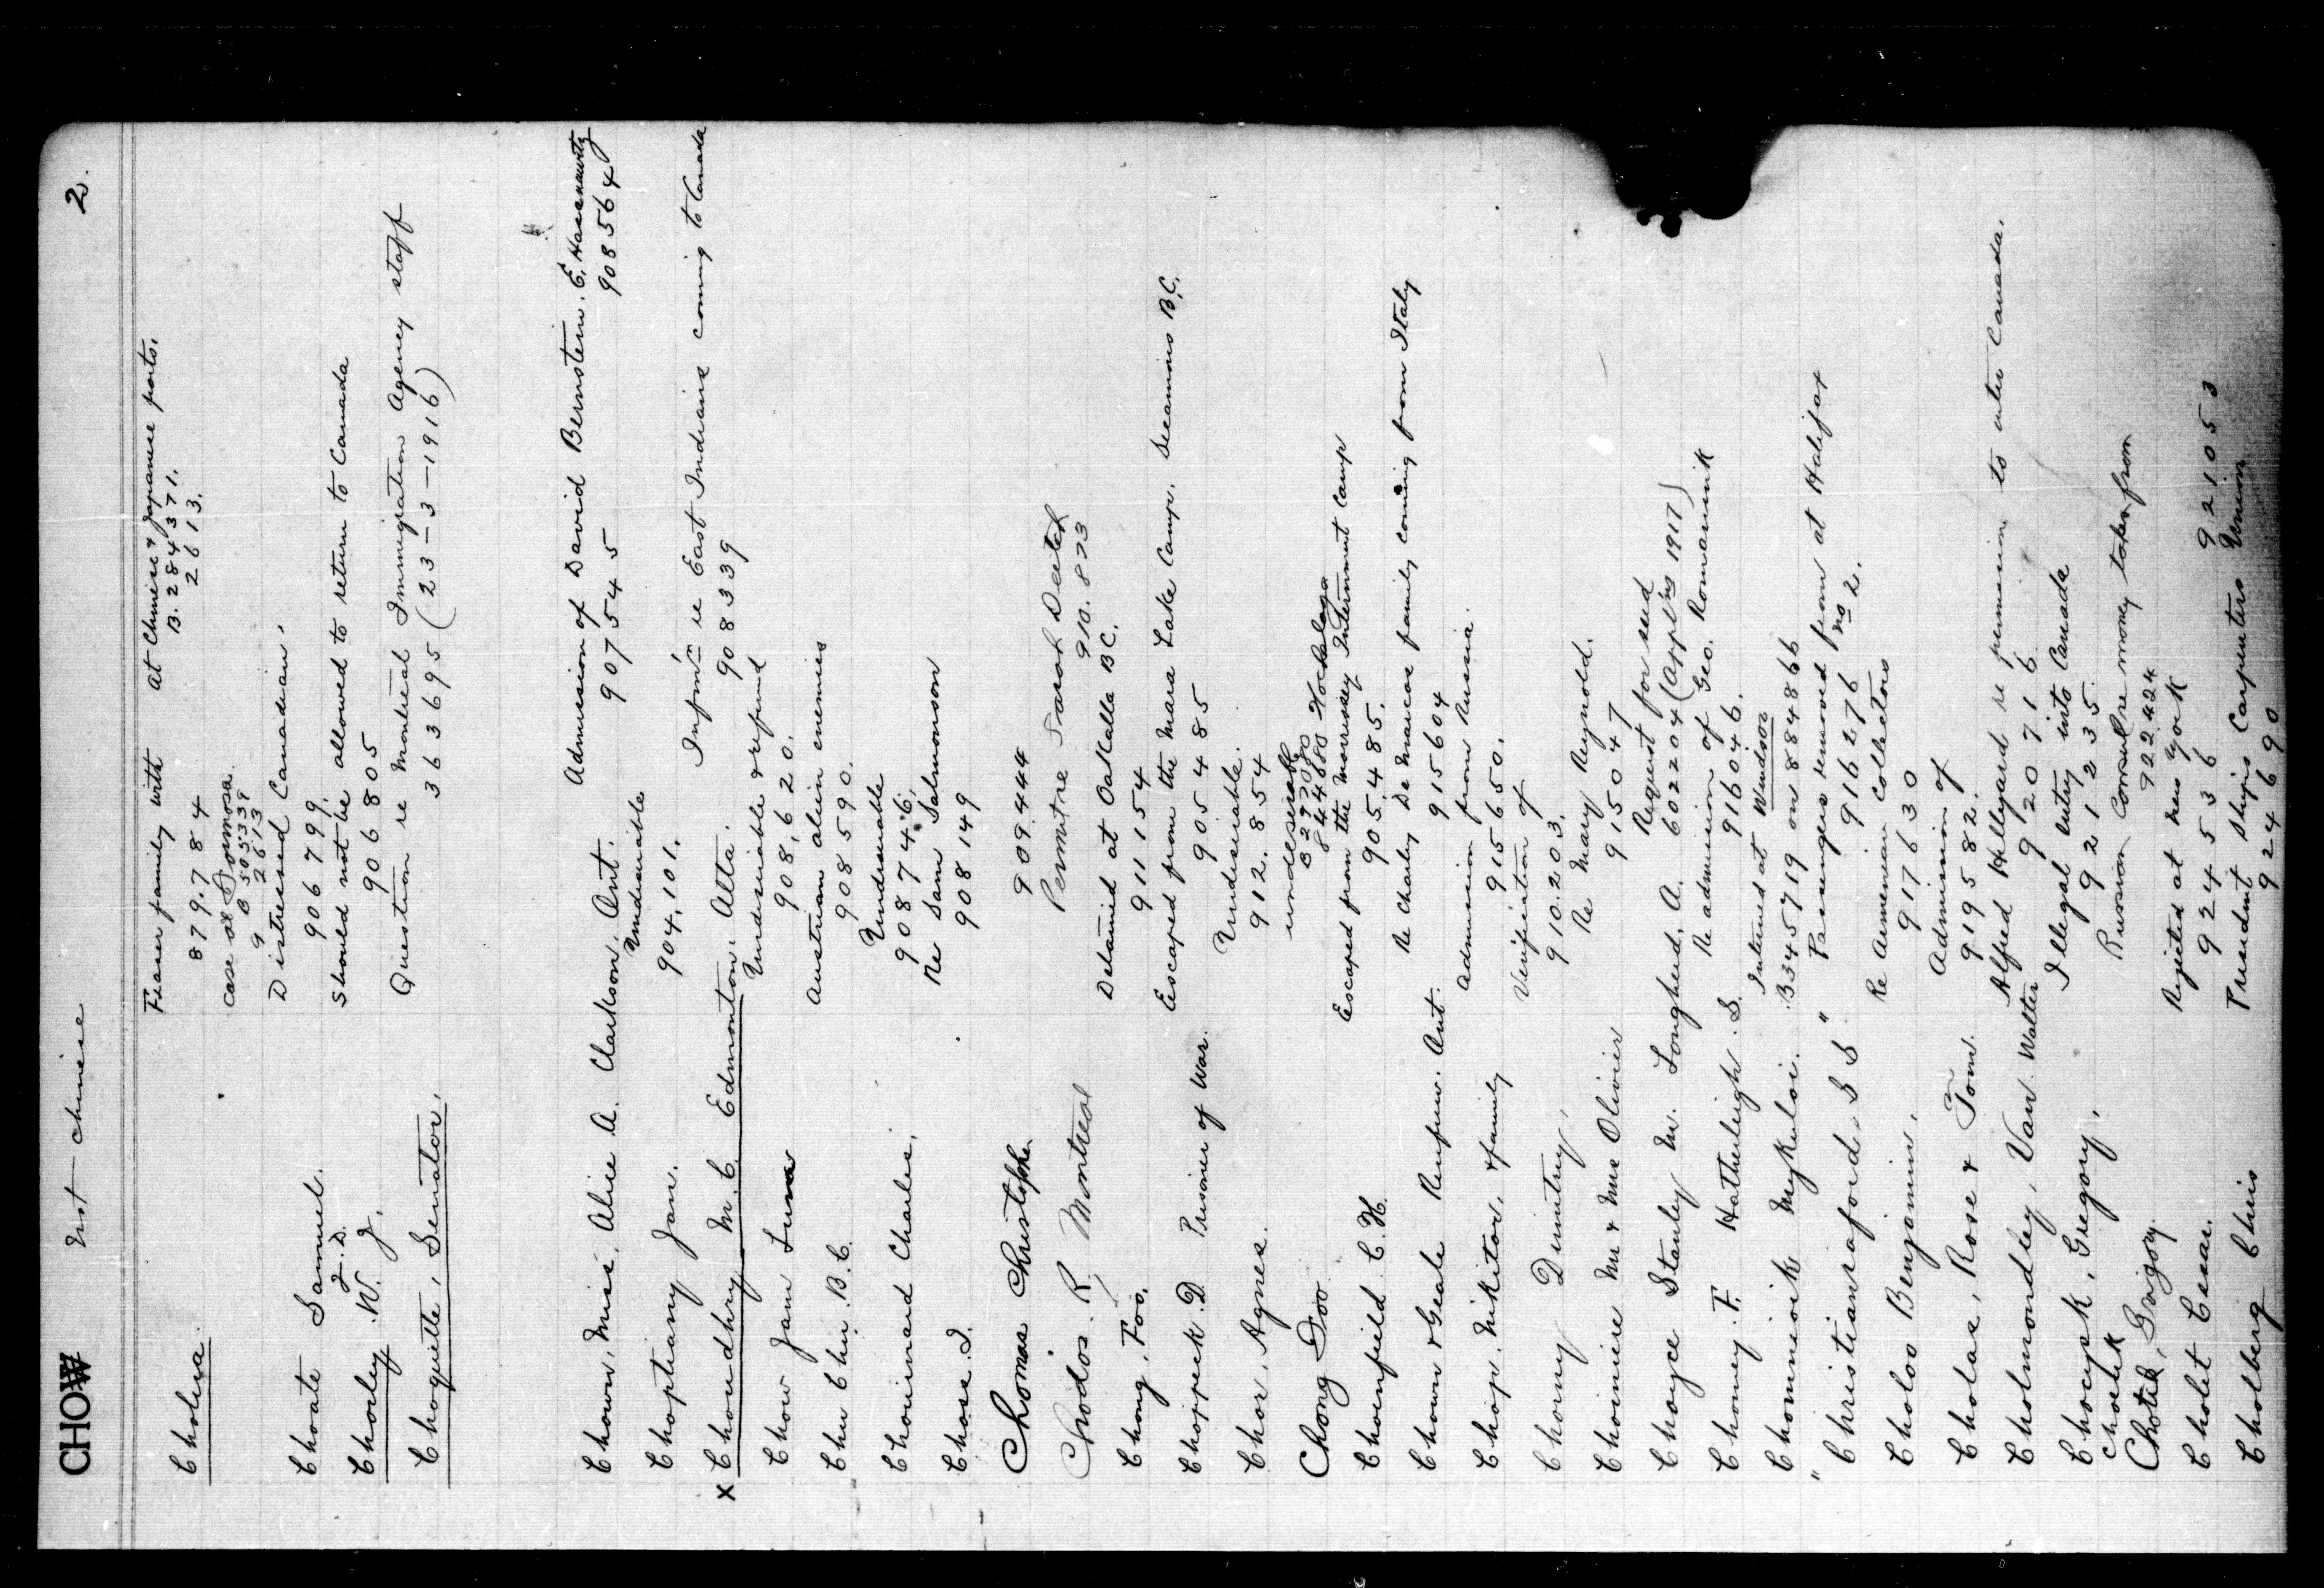 CHOW Not Chinese 2.
Cholera. Fraser family with At Chinese & Japanese ports.
879784 B. 284371.
2613.
Case at Formosa.
B 505339
9 2613
Distressed Canadian.
Choate Samuel. 906799.
J. D. Should not be allowed to return to Canada
Choxley. W. J. 906805
Question re Montreal Immigration Agency staff
Choquette, Senator. 363695 (23-3-1916)
Admission of David Bernstein. E.
Chown, Miss, Alice A. Clarkson. Ont. 907545 908564
Undesirable
Choptiany Jan. 904,101.
Infm'n re East Indians coming to Canada
x Choudhry M. C. Edmonton. Alta. 908339
Undesirable & refund
Chow Jam 908,620.
Austrian alien enemies
Chu Chu. B.C. 908590.
Undesirable
Chouinard Charles. 908746.
Re Sam Salmonson
Choss. I. 908149
Chomas Christophe. 909.444
Permit re Sarah
Chodos. R, Montreal 910.873
Detained at Oakalla B.C.
Chong, Foo. 911154
Escaped from the Mara Lake Camp. Sicamous B.C.
Choppeck. D. Prisoner of War. 905485
Undesirable.
Chor, Agnes. 912.854
undesirable
Chong Foo 844680 Hochelaga
Escaped from the Morrissey Internment Camp
Choenfield C. H. 905,485.
Re Charley De Marcos family coming from Italy
Chown & Geale Renfrew. Ont. 915604
Admission from Russia.
Chop. Nikitor, & family 915650.
Verification of
Chorny Dimitry, 910.203.
Re Mary Reynold.
Choiniere Mr & Mrs Olivier 915047
Request for seed
Choyce Stanley M. Longhed, A. 602204 (Appl'ns 1917)
Re admission of Geo. Romaniuk
Chomey. F. Hatherleigh. S. 916046.
Interned at Windsor
Chomnioik Mykuloi. B345719 on 884866
Passengers removed from at Halifax
" Christiansrafond. S S " 916276 no 2.
Re Armenian Collectors
Choloo Benjamin, 917630
Admission of
Cholas, Rose & Tom. 919582.
Alfred Hallyard re permission to enter Canada.
Cholmondley, Van. Walter 920716
Illegal entry into Canada
Chocysk, Gregory, 921235.
Chotek Russian Consul re money taken from
Chotek, Grigory. 922424
Rejected at New York
Cholet Cesar. 924536 921053
President Ships Carpenters Union
Cholberg Chris 924690